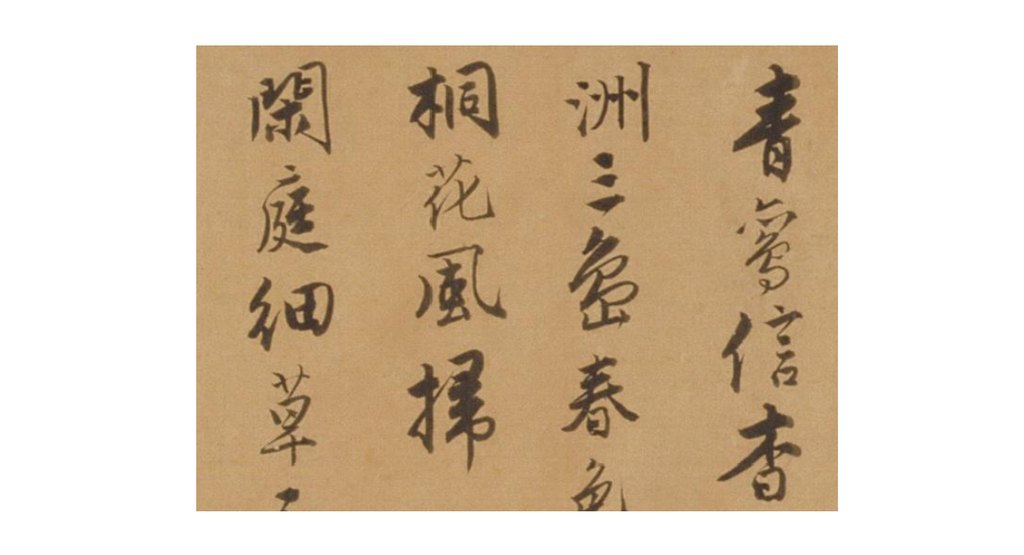 青鸞信杳
洲三島春色
桐花風掃
閑庭細草